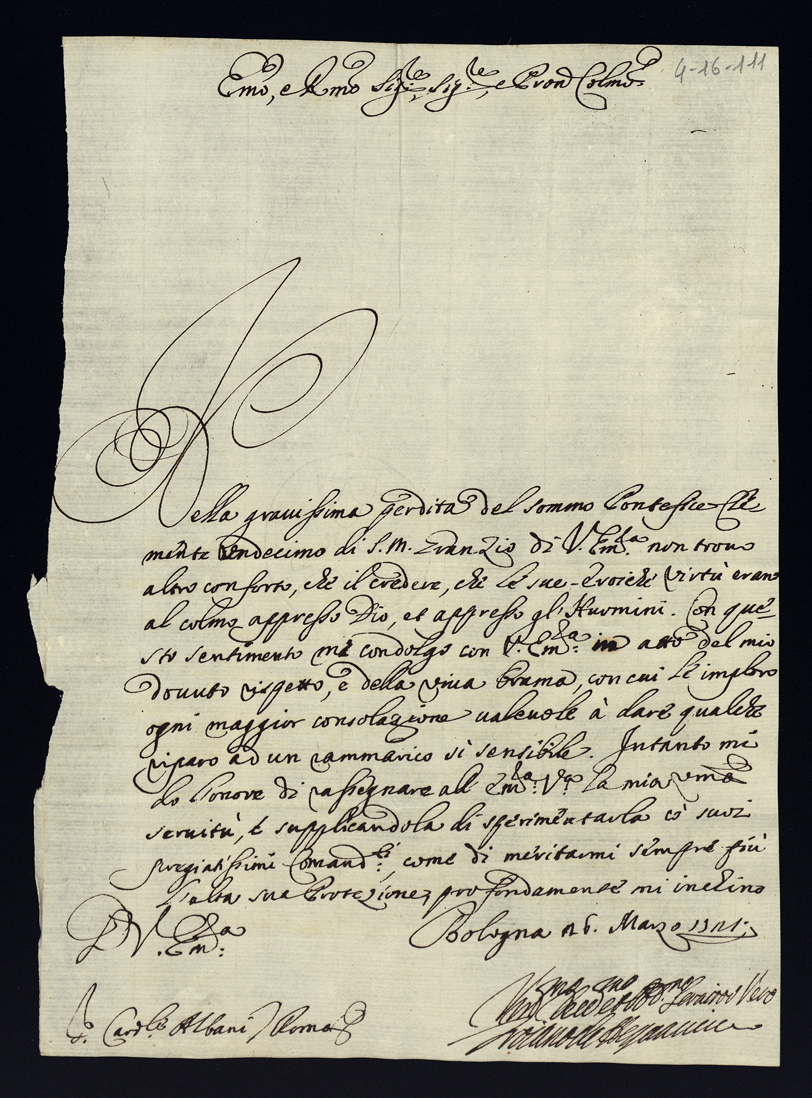 4-16-111
Emo, e Rmo Sig:re Sig:re, e Pron Colmo
Nella grauissima perdita del sommo Pontefice Cle-
mente Undecimo di S. M. Gran Zio di V. Em:za non trouo
altro conforto, che il credere, che le sue Eroiche virtù erano
al colmo appresso Dio, et appresso gl'Huomini. Con que-
sto sentimento mi condolgo con V. Em:za in atto del mio
douuto rispetto, e della viua brama, con cui le imploro
ogni maggior consolazione ualeuole à dare qualche
riparo ad un rammarico sì sensibile. Intanto mi
do l'onore di rassegnare all' Em:za V:a la mia vma
seruitù, e supplicandola di sperimentarla co' suoi
pregiatissimi Comand:ti, come di meritarmi sempre più
l'alta sua Protezione, profondamente mi inchino
D V. Em:za
Bologna 26. Marzo 1721:
S:r Card:le Albani Roma
Vmo Deuo et Obl:mo Seruitor Vero